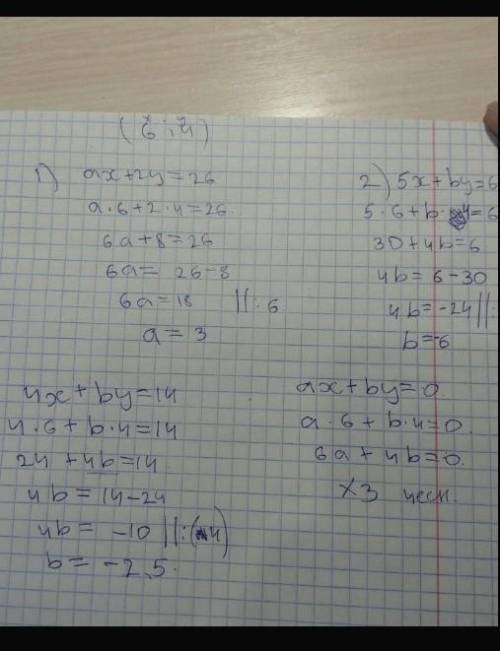 (6 ; 4)
1) ax+2y=26
a·6+2·4=26
6a+8=26
6a= 26-8
6a=18 ||:6
a=3
2) 5x+by=6
5·6+b·4=6
30+4b=6
4b=6-30
4b=-24||:
b=-6
4x+by=14
4·6+b·4=14
24+4b=14
4b=14-24
4b= -10||:(4)
b= -2,5.
ax+by=0
a·6+b·4=0
6a+4b=0.
ХЗ чесн